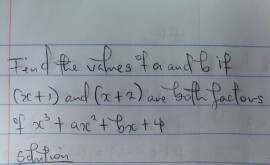 Find the values of a and b if
(x+1) and (x+2) are both factors
of x³ + ax² + bx + 4
Solution